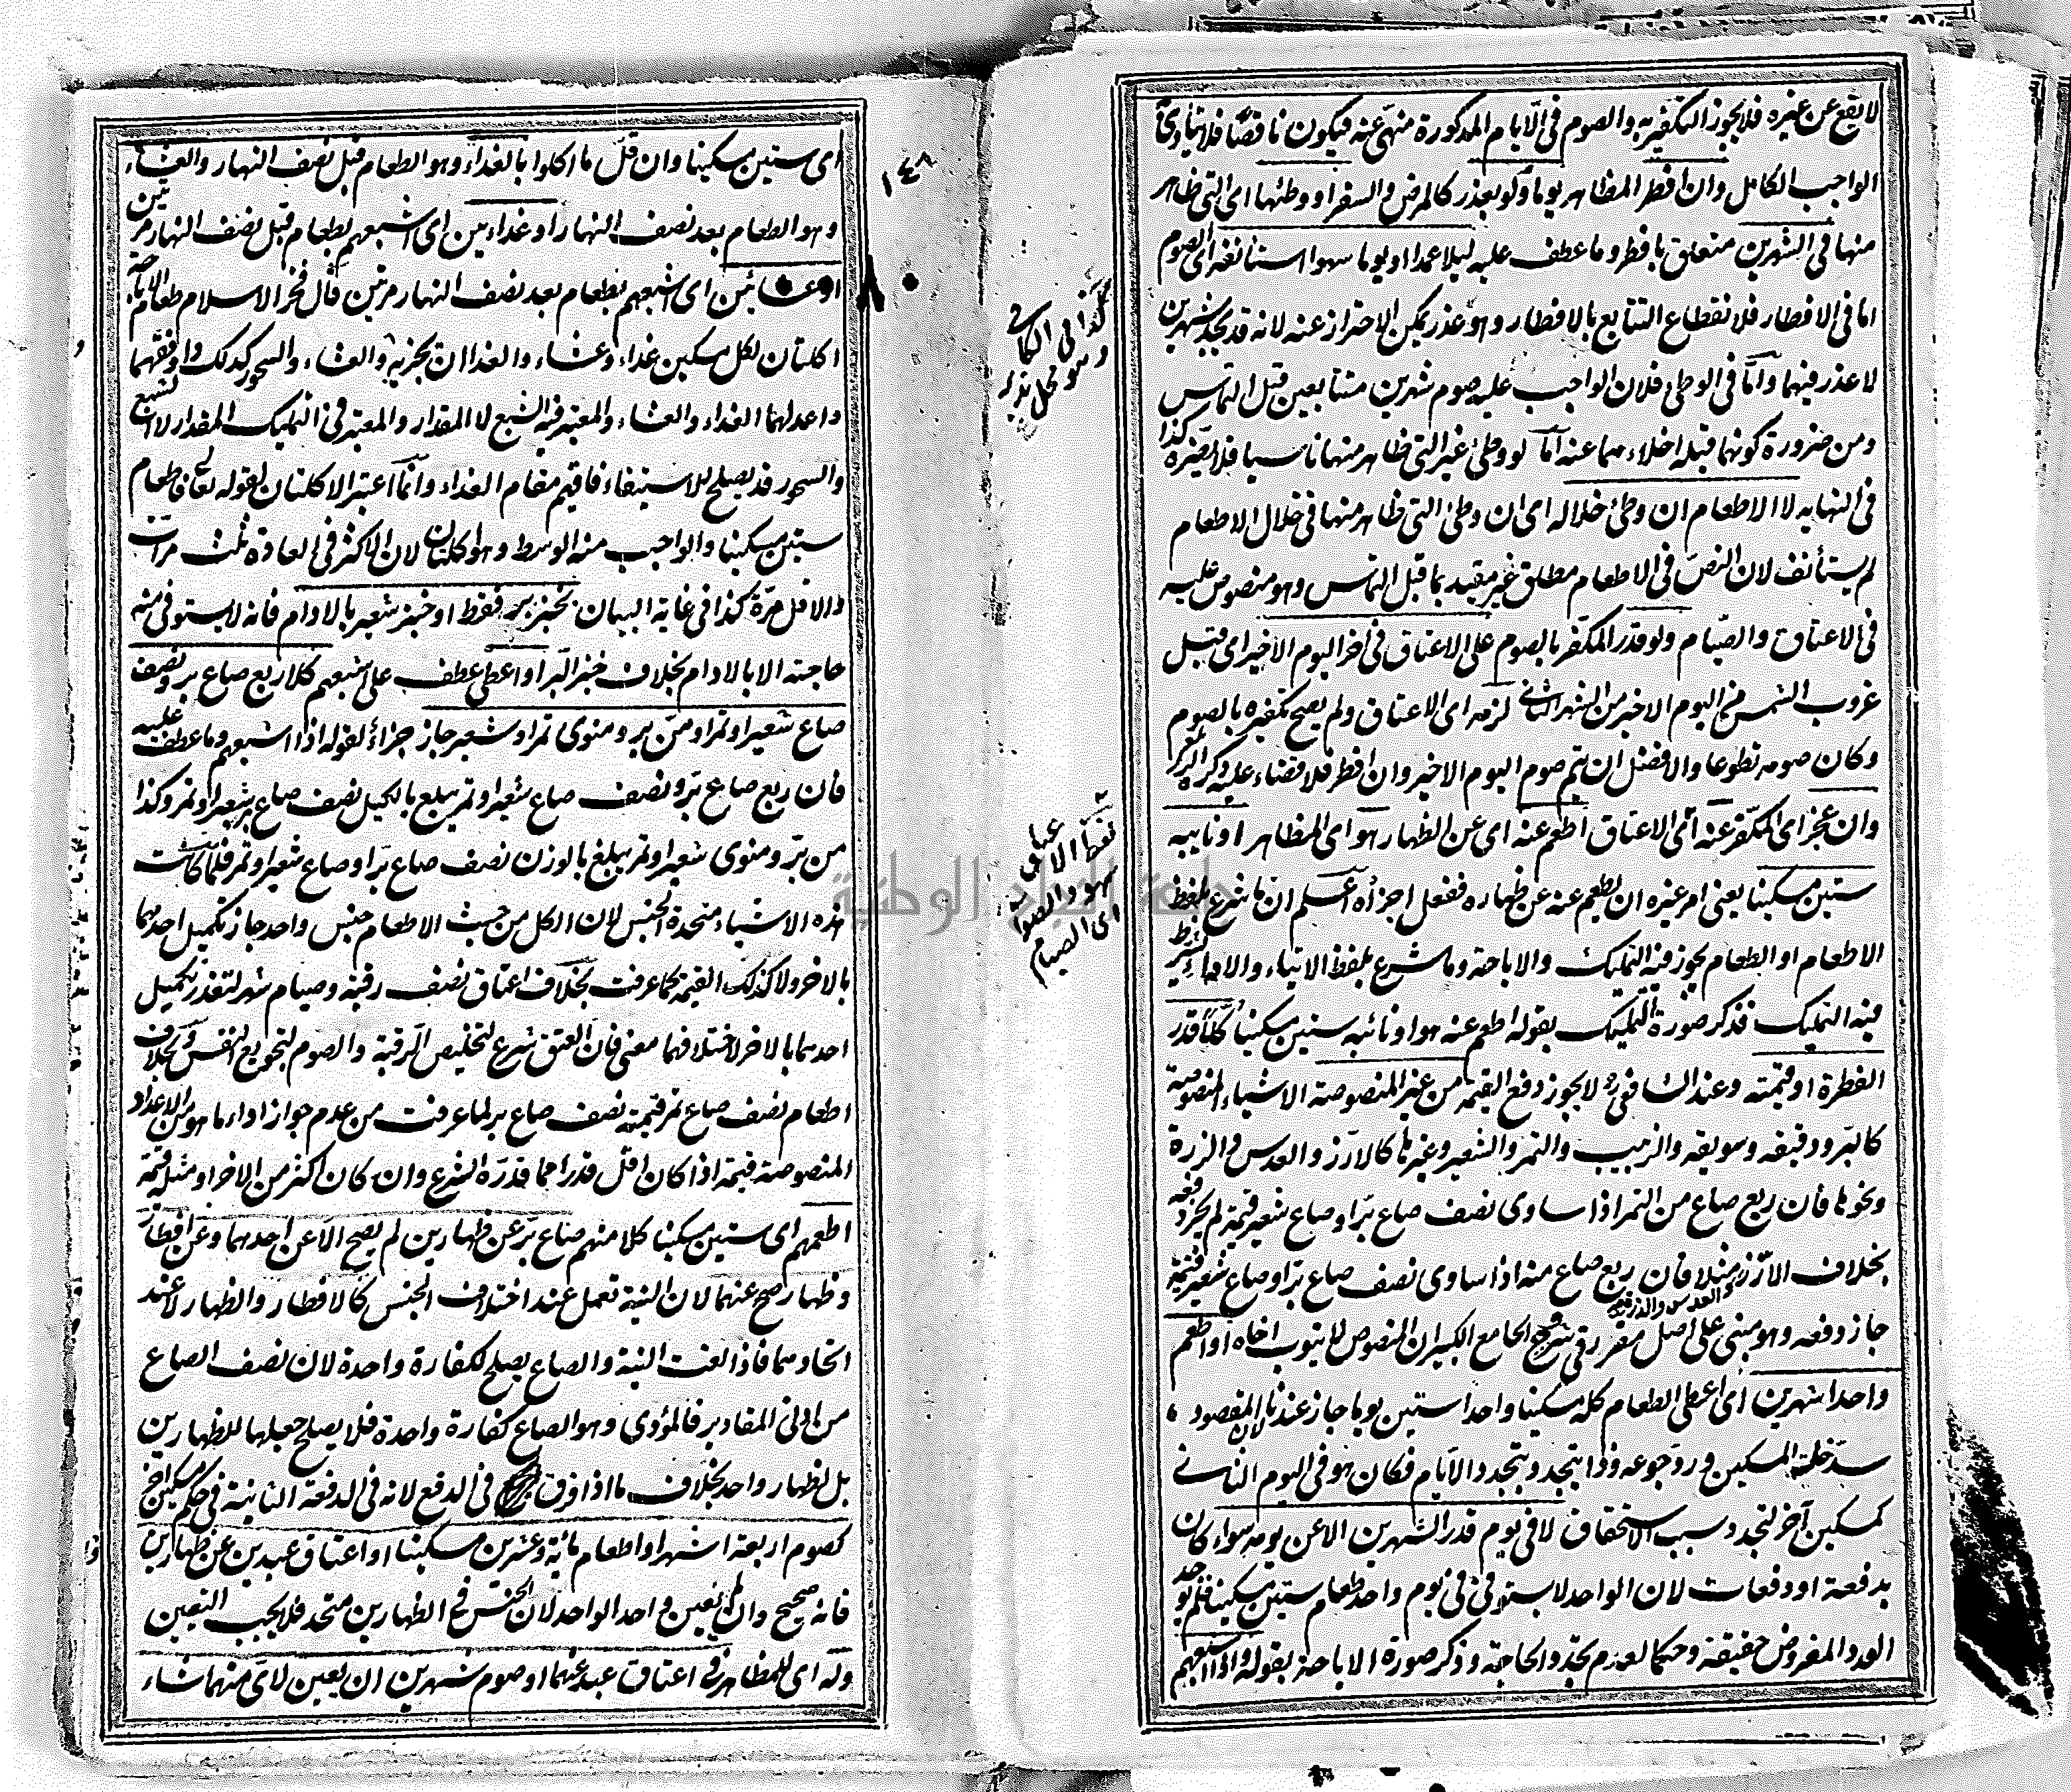 لا يقع عن غيره فلا يجوز التكفير به والصوم في الايام المذكورة منهي عنه فيكون ناقصا فلا يتادى به
الواجب الكامل وان افطر المظاهر يوما ولو بعذر كالمرض والسفر او وطئها اي التي ظاهر
منها في الشهرين متعلق بافطر وما عطف عليه ليلا عمدا او يوما سهوا استانفه اي الصوم
اما في الافطار فلانقطاع التتابع بالافطار وهو عذر يمكن الاحتراز عنه لانه قد يجد شهرين
لا عذر فيهما واما في الوطي فلان الواجب عليه صوم شهرين متتابعين قبل التماس
ومن ضرورة كونهما قبله اخلاءهما عنه اما لو وطئ غير التي ظاهر منها ناسيا فلا يضره كذا
في النهاية لا الاطعام ان وطئ خلاله اي ان وطئ التي ظاهر منها في خلال الاطعام
لم يستأنف لان النص في الاطعام مطلق غير مقيد بما قبل التماس وهو منصوص عليه
في الاعتاق والصيام ولو قدر المكفر بالصوم على الاعتاق في اخر اليوم الاخير اي قبل
غروب الشمس في اليوم الاخير من الشهر الثاني لزمه اي الاعتاق ولم يصح تكفيره بالصوم
وكان صومه تطوعا والافضل ان يتم صوم اليوم الاخير وان افطر فلا قضاء عليه ذكره
وان عجز اي المكفر عنه اي الاعتاق اطعم عنه اي عن الظهار هو اي المظاهر او نايبه
ستين مسكينا يعني امر غيره ان يطعم عنه عن ظهاره ففعل اجزأه اعلم ان ما شرع بلفظ
الاطعام او الطعام يجوز فيه التمليك والاباحة وما شرع بلفظ الايتاء والاداء يشترط
فيه التمليك فذكر صورة التمليك بقوله اطعم عنه هو او نائبه ستين مسكينا كلا قدر
الفطرة او قيمته وعند الشافعي لا يجوز دفع القيمة من غير المنصوصة الاشياء المنصوصة
كالبر ودقيقه وسويقه والزبيب والتمر والشعير وغيرها كالارز والعدس والذرة
ونحوها فان ربع صاع من التمر اذا ساوى نصف صاع بر او صاع شعير قيمة لم يجز دفعه
بخلاف الارز مثلا فان ربع صاع منه اذا ساوى نصف صاع بر او صاع شعير قيمة
والعدس والذرة
جاز دفعه وهو مبني على اصل مقرر في شرح الجامع الكبير ان المنصوص لا ينوب اخاه او اطعم
واحدا شهرين اي اعطى الطعام كله مسكينا واحدا ستين يوما جاز عندنا لان المقصود
سد خلة المسكين ورد جوعه وذا يتجدد بتجدد الايام فكان هو في اليوم الثاني
كمسكين آخر لتجدد سبب الاستحقاق لا في يوم قدر الشهرين الا عن يومه سواء كان
بدفعة او دفعات لان الواحد لا يستوفي في يوم واحد طعام ستين مسكينا فلم يوجد
العدد المفروض حقيقة وحكما لعدم تجدد الحاجة وذكر صورة الاباحة بقوله واذا اشبعهم
كذا في الكافي
وهو محل
اي الصيام
١٤٨
اي ستين مسكينا وان قل ما اكلوا بالغداء وهو الطعام قبل نصف النهار والعشاء
وهو الطعام بعد نصف النهار او غداءين اي اشبعهم بطعام قبل نصف النهار مرتين
او عشائين اي اشبعهم بطعام بعد نصف النهار مرتين قال فخر الاسلام طعام الاباحة
اكلتان لكل مسكين غداء وعشاء والغداان تجزيه والعشاء والسحور كذلك واوفقهما
واعدلهما الغداء والعشاء والمعتبر فيه الشبع لا المقدار والمعتبر في التمليك المقدار لا الشبع
والسحور قد يصلح للاستيفاء فاقيم مقام الغداء وانما اعتبر الاكلتان لقوله تعالى فاطعام
ستين مسكينا والواجب منه الوسط وهو اكلتان لان الاكثر في العادة ثلث مرات
والاقل مرة كذا في غاية البيان بخبز بر فقط او خبز شعير بالادام فانه لا يستوفي منه
حاجته الا بالادام بخلاف خبز البر او اعطى عطف على اشبعهم كلا ربع صاع بر ونصف
صاع شعير او تمر او من بر ومنوي تمر او شعير جاز جزاء لقوله اذا اشبعهم وما عطف عليه
فان ربع صاع بر ونصف صاع شعير او تمر يبلغ بالكيل نصف صاع بر وشعير او تمر وكذا
من بر ومنوي شعير او تمر يبلغ بالوزن نصف صاع بر او صاع شعير او تمر فلما كانت
هذه الاشياء متحدة الجنس لان الكل من حيث الاطعام جنس واحد جاز تكميل احدهما
بالاخر ولا كذلك القيمة كما عرفت بخلاف اعتاق نصف رقبة وصيام شهر لتعذر تكميل
احدهما بالاخر لاختلافهما معنى فان العتق شرع لتخليص الرقبة والصوم لتجويع النفس وبخلاف
اطعام نصف صاع تمر قيمته نصف صاع بر لما عرفت من عدم جواز اداء ما هو من الاعداد
المنصوصة قيمة اذا كان اقل قدرا مما قدره الشرع وان كان اكثر من الاخر او مثله قيمة
اطعمهم اي ستين مسكينا كلا منهم صاع بر عن ظهارين لم يصح الا عن احدهما وعن افطار
وظهار صح عنهما لان النية تعمل عند اختلاف الجنس كالافطار والظهار لا عند
اتحادهما فاذا لغت النية والصاع يصلح لكفارة واحدة لان نصف الصاع
من ادنى المقادير فالمؤدى وهو الصاع كفارة واحدة فلا يصلح جعلها للظهارين
بل لظهار واحد بخلاف ما اذا فرق في الدفع لانه في الدفعة الثانية في حكم مسكين اخر
كصوم اربعة اشهر او اطعام مائة وعشرين مسكينا او اعتاق عبدين عن ظهارين
فانه صحيح وان لم يعين واحد الواحد لان الجنس في الظهارين متحد فلا يجب التعيين
وله اي للمظاهر في اعتاق عبد عنهما او صوم شهرين ان يعين لاي منهما شاء
جامعة النجاح الوطنية